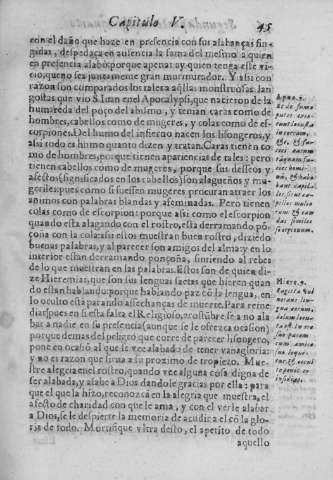 Capitulo V. 45
con el daño que haze en presencia con sus alabanças fin
gidas, despedaça en ausencia la fama del mesmo a quien
en presencia alabó: porque apenas ay quien tenga este vi
cio, que no sea juntamente gran murmurador. Y assi con
razon son comparados los tales a aqllas monstruosas lan
gostas que vio S. Iuan en el Apocalypsi, que nacieron de la
humareda del poço del abismo, y tenian caras como de
hombres, cabellos como de mugeres, y colas como de es-
corpiones. Del humo del infierno nacen los lisongeros, y
assi todo es humo quanto dizen y tratan. Caras tienen co
mo de hombres, porque tienen apariencias de tales: pero
tienen cabellos como de mugeres, porque sus desseos y
afectos (significados en los cabellos) son alagueños y mu-
geriles: pues como si fuessen mugeres procuran atraer los
animos con palabras blandas y afeminadas. Pero tienen
colas como de escorpion: porque assi como el escorpion
quando esta alagando con el rostro, esta derramando pō
çoña con la cola: assi estos muestran buen rostro, diziēdo
buenas palabras, y al parecer son amigos del alma: y en lo
interior estan derramando ponçoña, sintiendo al rebes
de lo que muestran en las palabras. Estos son de quien di
ze Hieremias, que son sus lenguas saetas que hieren quan
do estan hablando: porque hablando paz cō la lengua, en
lo oculto està parando assechanças de muerte. Para reme
diar pues en si esta falta el Religioso, acostūbre se a no ala
bar a nadie en su presencia (aunque se le ofrezca ocasion)
porque demas del peligro que corre de parecer lisongero,
pone en ocasiō al que se vee alabado de tener vanagloria:
y no es razon que sirua a su proximo de tropieço. Mue-
stre alegria en el rostro, quando vee alguna cosa digna de
ser alabada, y alabe a Dios dandole gracias por ella: para
que el que la hizo, reconozca en la alegria que muestra, el
afecto de charidad con que le ama, y con el verle alabar
a Dios, se le despierte la memoria de acudir a el cō la glo-
ria de todo. Mortifique vltra desto, el apetito de todo
aquello
Apoc. 9.
Et de fumo
putei exie-
runt locustæ
in terram,
&c. & fa-
cies earum
tanquam
facies homi-
nū, & habe-
bant capil-
los, sicut ca-
pillos mulie
rum: & cau
das similes
scorpionum.
Hiere. 9.
Sagitta vul
nerans lin-
gua eorum,
dolum locu-
ta est. In ore
suo pacem
cum amico
suo loqui-
tur, & occul
te ponit ei
insidias.